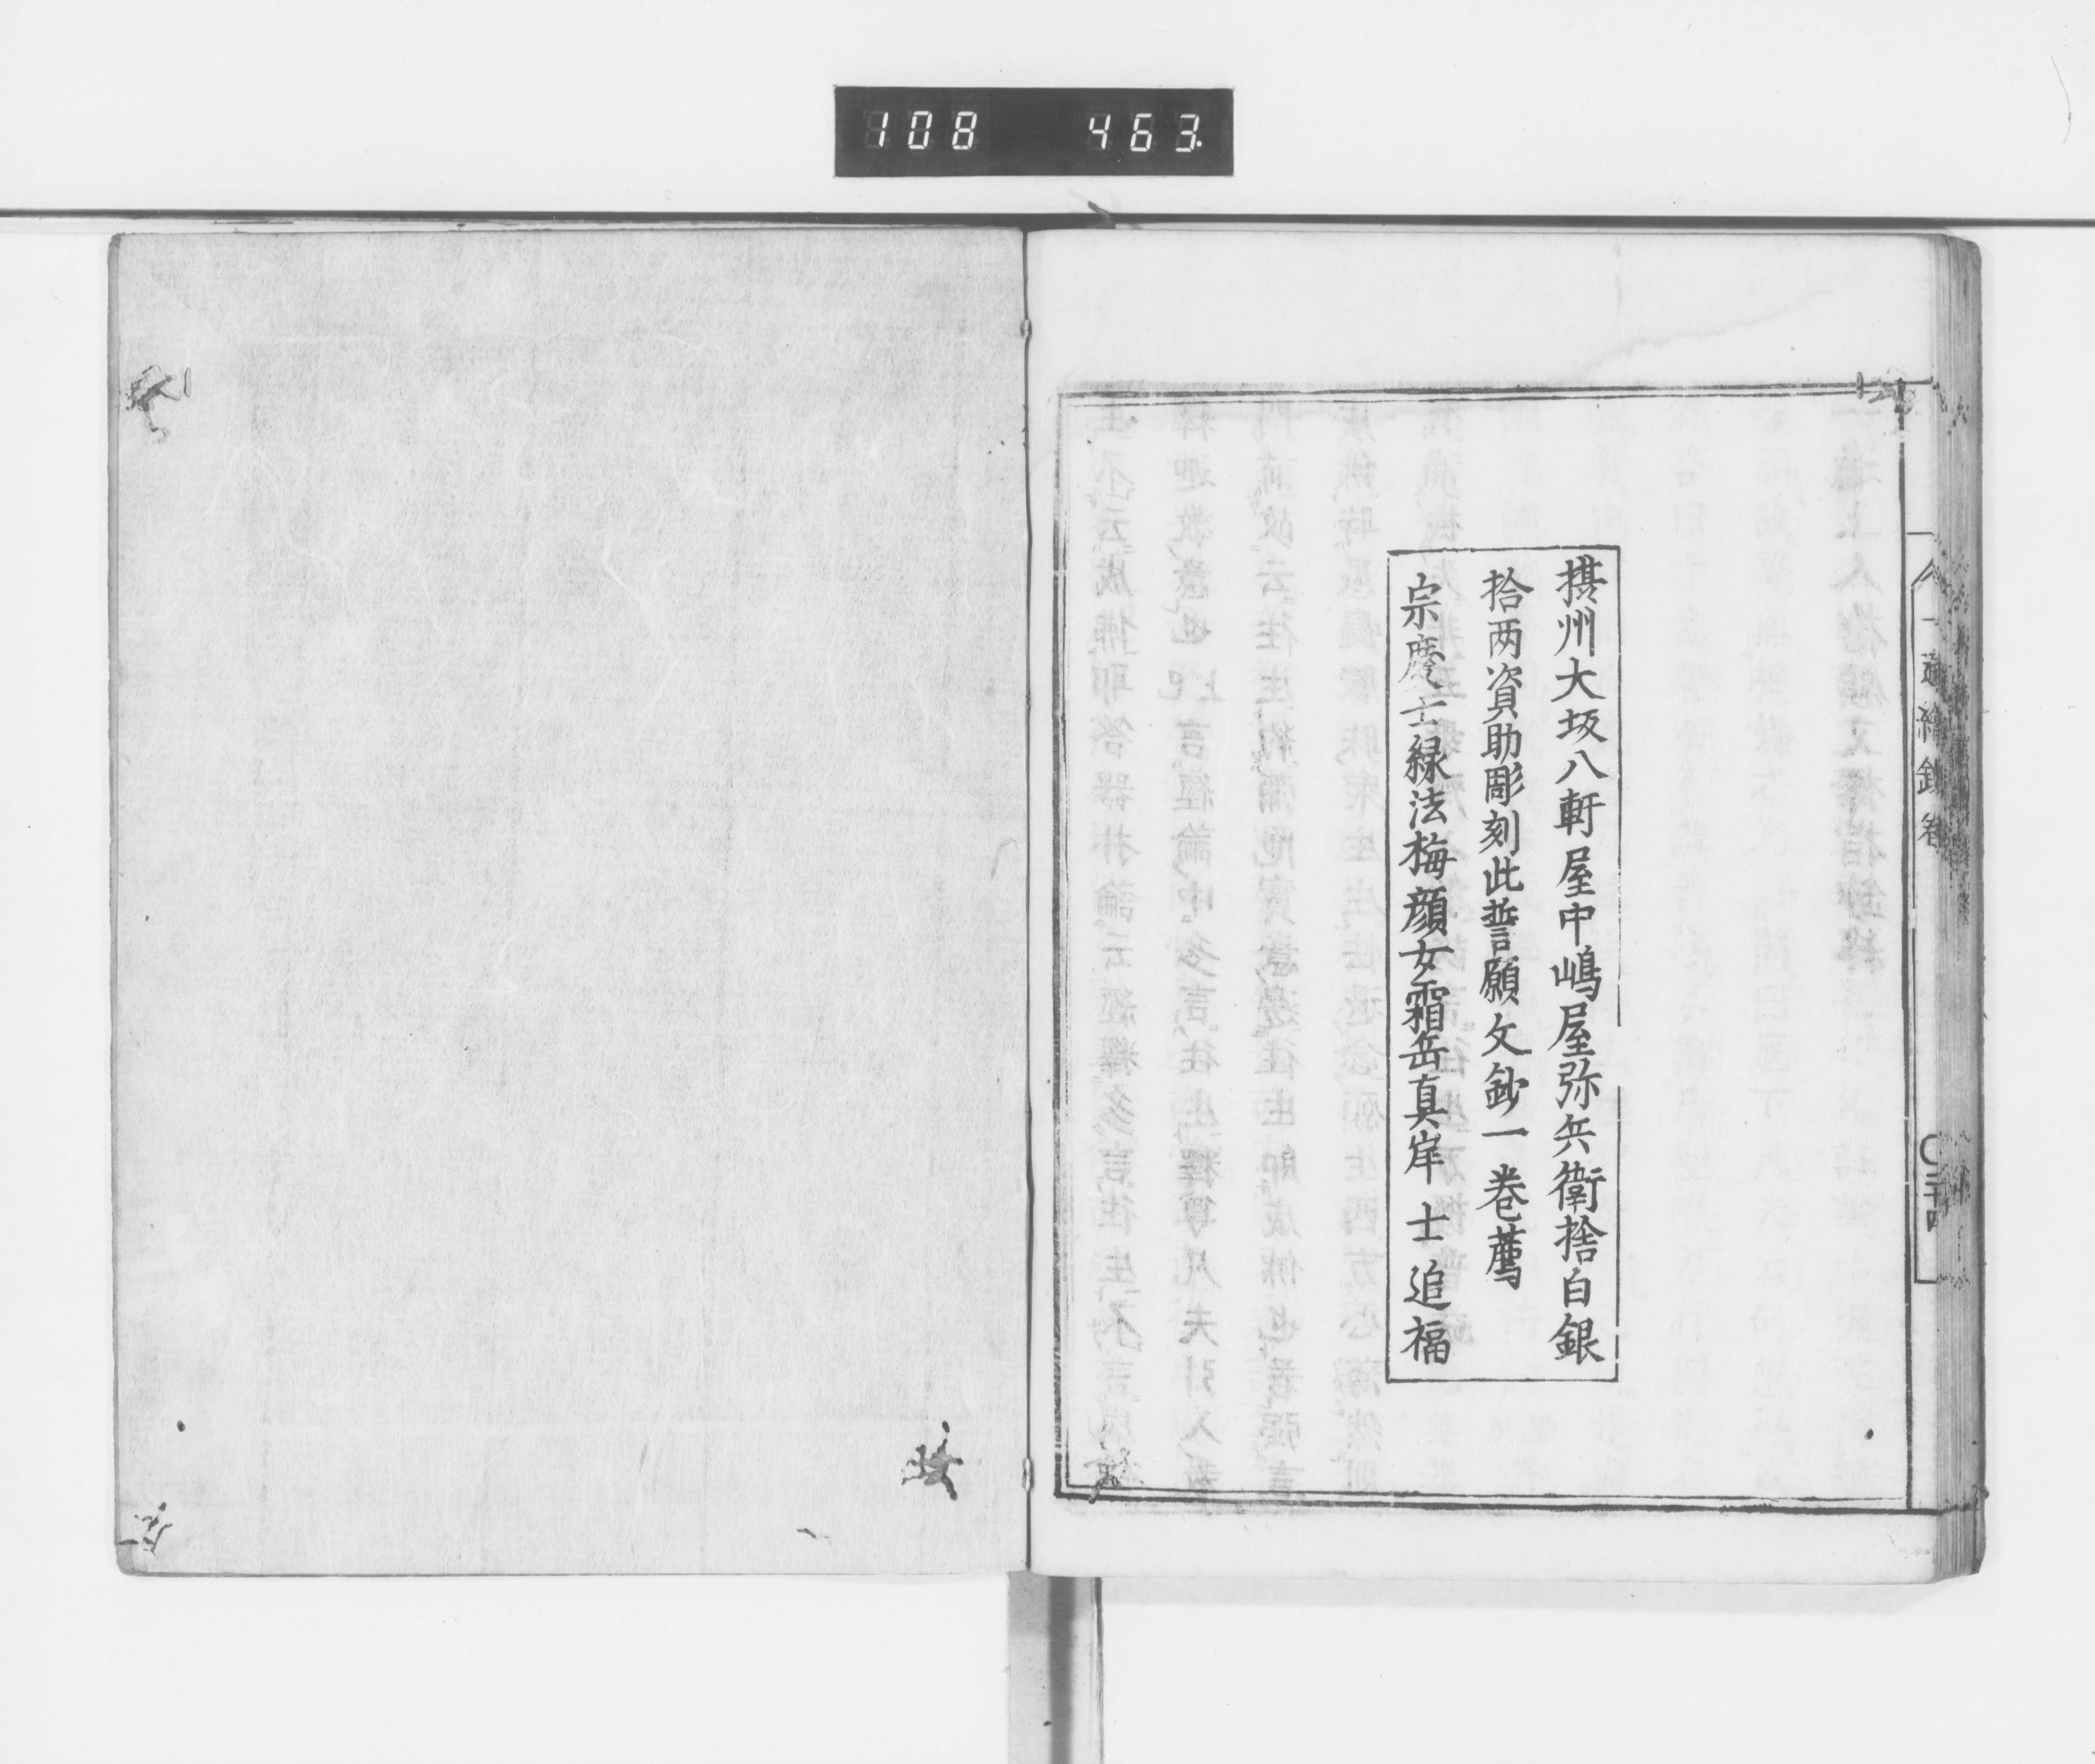 108 463
摂州大坂八軒屋中嶋屋弥兵衛捨白銀
拾两資助彫刻此誓願文鈔一卷薦
宗慶士緑法梅顔女霜岳真岸士追福